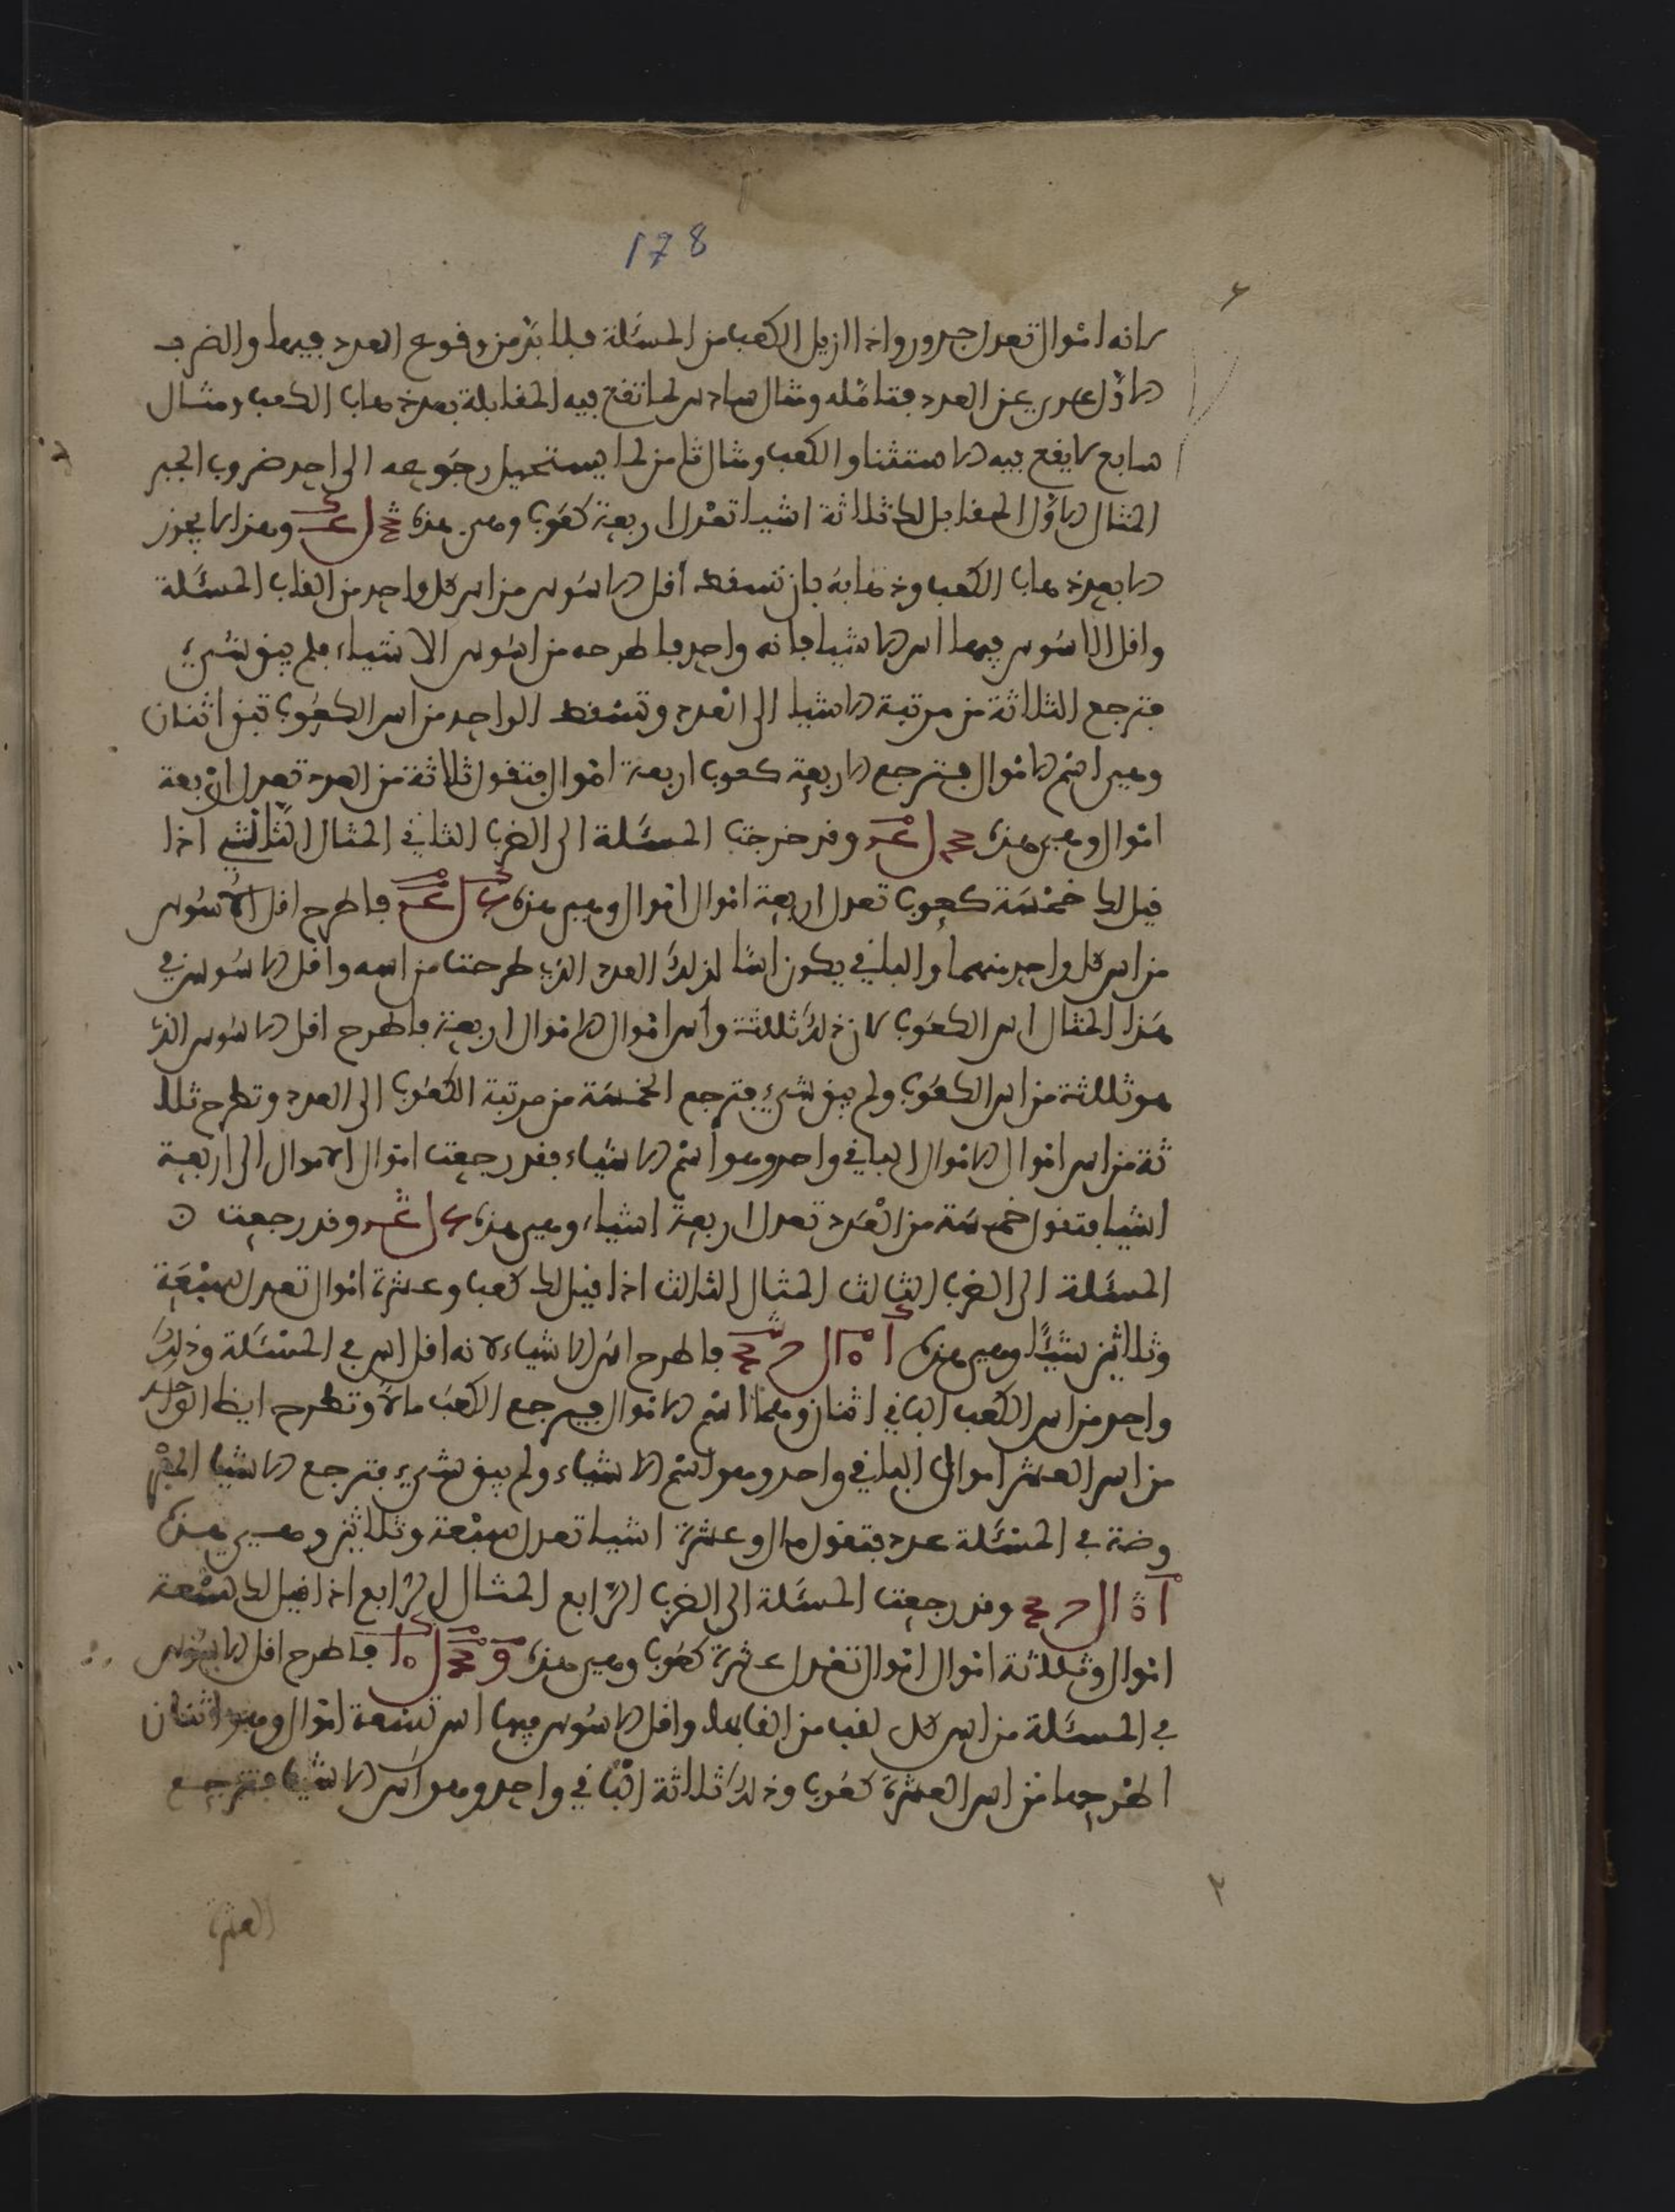 178
لانه اموال تعدل جدور واذا ازيل الكعب من المسئلة فلا بد من وقوع العدد فيها والضرب
الاول عري عن العدد فتامله ومثال سادس لما تقع فيه المقابلة بعد ذهاب الكعب ومثال
سابع لا يقع فيه الاستثنا والكعب ومثال ثامن لما يستحيل رجوعه الى احد ضروب الجبر
المثال الاول المقابل لك ثلاثة اشيا تعدل اربعة كعوب وهي هذه وهذا لا يجوز
الا بعد ذهاب الكعب وذهابه بان تسقط اقل الاسوس من اس كل واحد من القاب المسئلة
واقل الاسوس فيها اس الاشيا فانه واحد فاطرحه من اسوس الاشياء فلم يبق شيء
فترجع الثلاثة من مرتبة الاشيا الى العدد وتسقط الواحد من اس الكعوب تبقى اثنان
وهي اسم الاموال فترجع الاربعة كعوب اربعة اموال فتقول ثلاثة من العدد تعدل اربعة
اموال وهي هذه وقد خرجت المسئلة الى الضرب الثاني المثال الثاني اذا
قيل لك خمسة كعوب تعدل اربعة اموال اموال وهي هذه فاطرح اقل الاسوس
من اس كل واحد منهما والباقي يكون اسا لذلك العدد الذي طرحت من اسه واقل الاسوس في
هذا المثال اس الكعوب لان ذلك ثلثة واس اموال الاموال اربعة فاطرح اقل الاسوس الذي
هو ثلثة من اس الكعوب ولم يبق شيء فترجع الخمسة من مرتبة الكعوب الى العدد وتطرح ثلا
ثة من اس اموال الاموال الباقي واحد وهو اسم الاشياء فقد رجعت اموال الاموال الى اربعة
اشيا فتقول خمسة من العدد تعدل اربعة اشياء وهي هذه وقد رجعت
المسئلة الى الضرب الثالث المثال الثالث اذا قيل لك كعب وعشرة اموال تعدل سبعة
وثلاثين شيئا وهي هذه فاطرح اس الاشياء لانه اقل اس في المسئلة وذلك
واحد من اس الكعب الباقي اثنان وهما اسم الاموال فيرجع الكعب مالا وتطرح ايضا الواحد
من اس العشر اموال الباقي واحد وهو اسم الاشياء ولم يبق شيء فترجع الاشيا المفر
وضة في المسئلة عدد فتقول مال وعشرة اشيا تعدل سبعة وثلاثين وهي هذه
وقد رجعت المسئلة الى الضرب الرابع المثال الرابع اذا قيل لك تسعة
اموال وثلثة اموال اموال تعدل عشرة كعوب وهي هذه فاطرح اقل الاسوس
في المسئلة من اس كل لقب من القابها واقل الاسوس فيها اس تسعة اموال وهو اثنان
اطرحها من اس العشرة كعوب وذلك ثلاثة الباقي واحد وهو اس الاشيا فترجع
العشرة